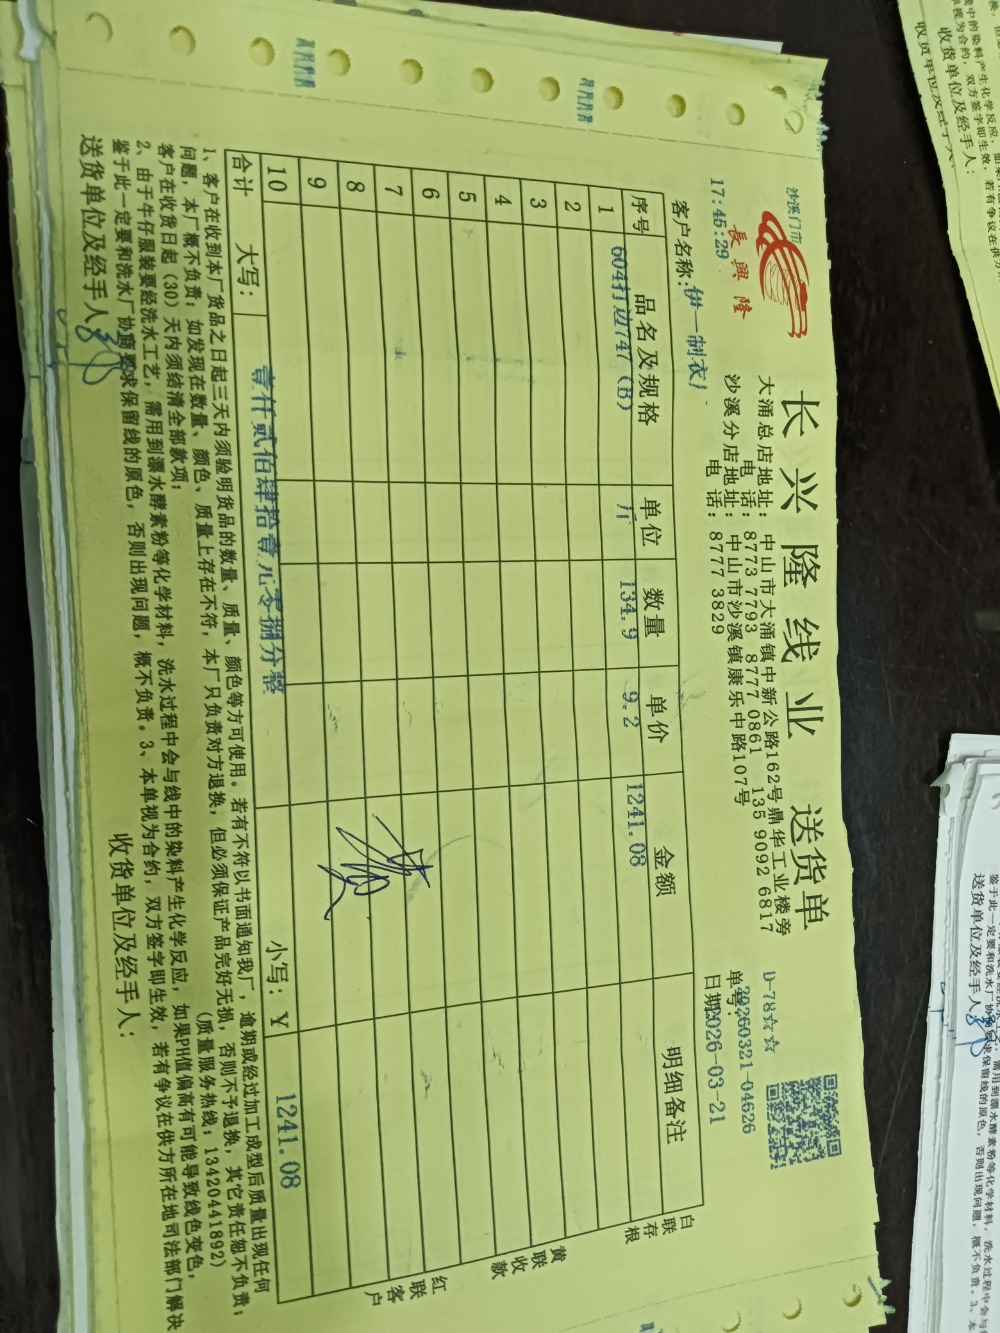 长兴隆线业 送货单
沙溪门市
長興隆
大涌总店地址: 中山市大涌镇中新公路162号鼎华工业楼旁
电 话: 8773 7793 8777 0861 135 9092 6817
沙溪分店地址: 中山市沙溪镇康乐中路107号
电 话: 8777 3829
D-78☆☆
单号: 20260321-04626
17:45:29
日期: 2026-03-21
客户名称: 伊一制衣厂
序号 品名及规格 单位 数量 单价 金额 明细备注
1 604打边747 (B) 斤 134.9 9.2 1241.08
2
3
4
5
6
7
8
9
10
合计 大写: 壹仟贰佰肆拾壹元零捌分整 小写: ￥ 1241.08
白联存根
黄联收款
红联客户
1、客户在收到本厂货品之日起三天内须验明货品的数量、质量、颜色等方可使用。若有不符以书面通知我厂，逾期或经过加工成型后质量出现任何
问题，本厂概不负责；如发现在数量、颜色、质量上存在不符，本厂只负责对方退换，但必须保证产品完好无损，否则不予退换，其它责任恕不负责；
客户在收货日起（30）天内须结清全部款项； (质量服务热线: 13420441892)
2、由于牛仔服装要经洗水工艺，需用到漂水酵素粉等化学材料，洗水过程中会与线中的染料产生化学反应，如果PH值偏高有可能导致线色变色，
鉴于此一定要和洗水厂协商要求保留线的原色，否则出现问题，概不负责。3、本单视为合约，双方签字即生效，若有争议在供方所在地司法部门解决
送货单位及经手人: 收货单位及经手人: